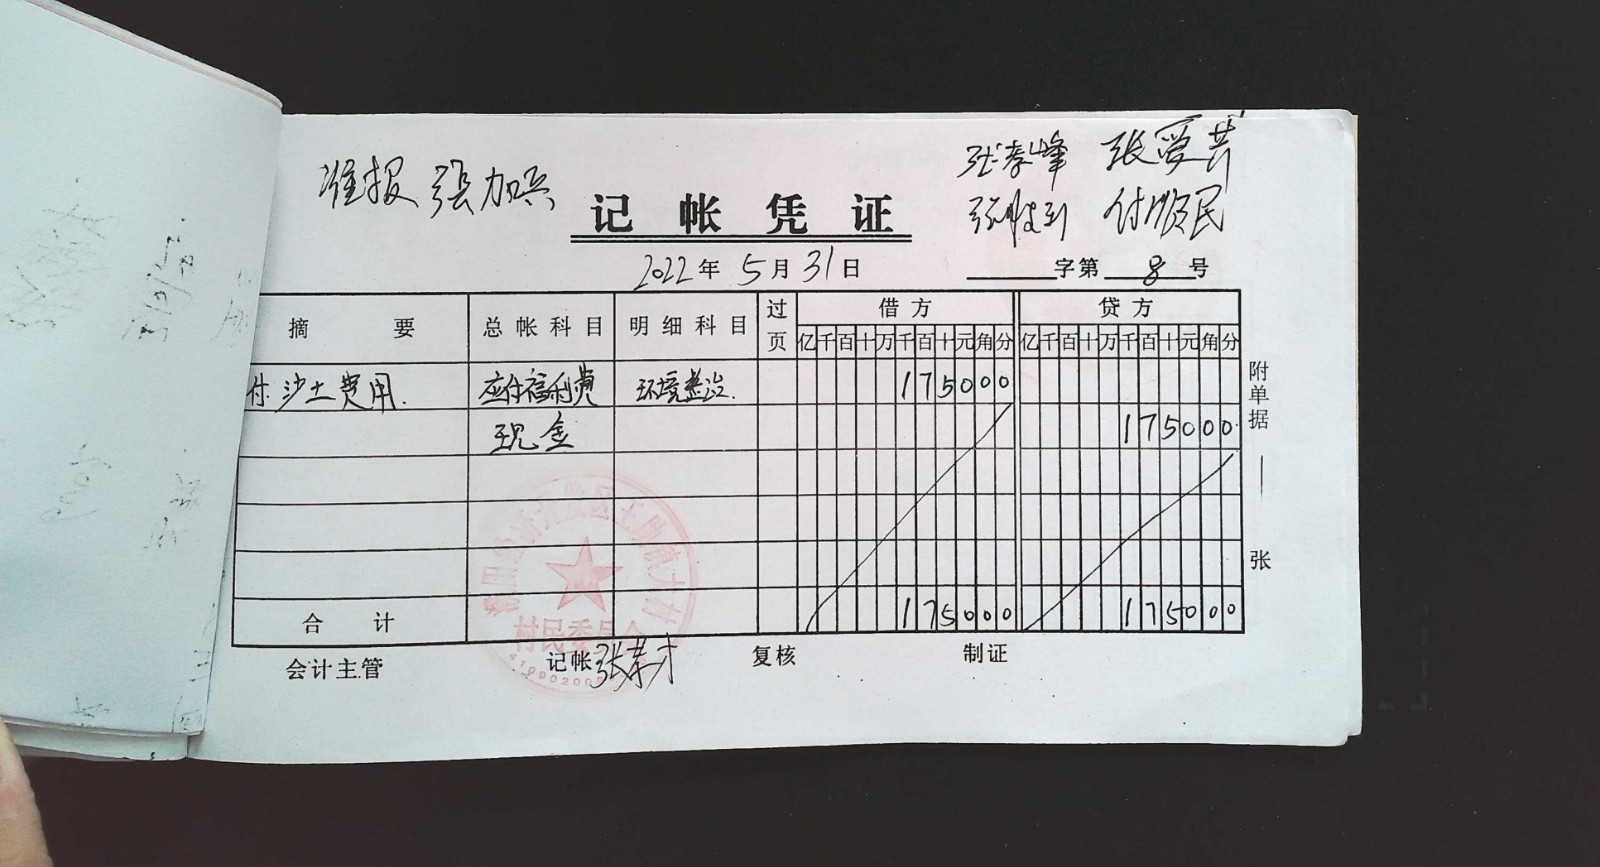 准报 张加兵
张孝峰 张爱芹
付顺民
记帐凭证
2022年5月31日
字第8号
摘要 总帐科目 明细科目 过页 借方 贷方
亿千百十万千百十元角分 亿千百十万千百十元角分
付沙土费用. 应付福利费 环境整治. 175000
现金 175000
合计 175000 175000
附单据 | 张
村民委员会
会计主管 记帐 复核 制证